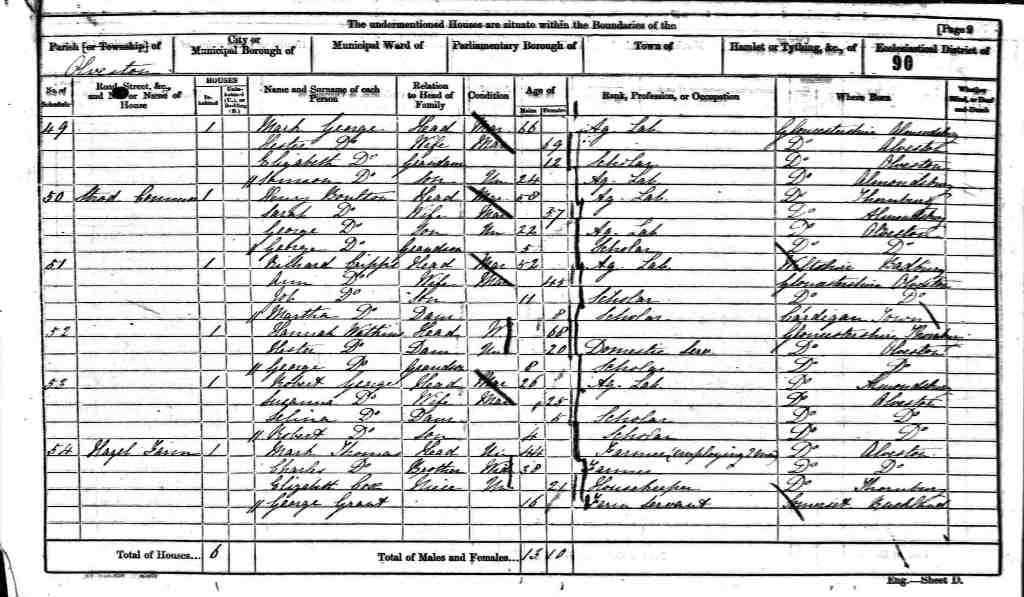 The undermentioned Houses are situate within the Boundaries of the
[Page 9
Parish [or Township] of
City or Municipal Borough of
Municipal Ward of
Parliamentary Borough of
Town of
Hamlet or Tything, &c., of
Ecclesiastical District of
Olveston
90
No. of Schedule
Road, Street, &c., and No. or Name of House
HOUSES
Inhabited
Name and Surname of each Person
Relation to Head of Family
Condition
Age of
Males
Females
Rank, Profession, or Occupation
Where Born
Whether Blind, or Deaf and Dumb
49 1 Mark George Head Mar 66 Ag. Lab. Gloucestershire Almondsbury
Hester Do Wife Mar Do
Elizabeth Do 12 Scholar Do Olveston
Do Son Un 24 Ag. Lab Do Almondsbury
50 Common 1 Henry Boulton Head Mar 58 Ag. Lab. Do Thornbury
Sarah Do Wife Mar 57 Do Almondsbury
George Do Son Un 22 Ag. Lab Do Olveston
George Do Grandson 5 Scholar Do Do
51 1 Richard Cripps Head Mar 52 Ag. Lab. Wiltshire Badbury
Ann Do Wife Mar Gloucestershire Olveston
Job Do Son 11 Scholar Do Do
Martha Do Daur 8 Scholar Cardigan Town
52 1 Hannah Watkins Head W 68 Gloucestershire
Hester Do Daur Un 20 Domestic Serv Do Olveston
George Do Grandson 8 Scholar Do Do
53 1 Robert George Head Mar 26 Ag. Lab Do Almondsbury
Susanna Do Wife Mar 25 Do
Selina Do Daur 5 Scholar Do Do
Robert Do Son 4 Scholar Do Do
54 Hazel Farm 1 Mark Thomas Head Un 44 Farmer (employing 2 men) Do Olveston
Charles Do Brother 38 Farmer Do Do
Elizabeth Cox Niece Un 21 Housekeeper Do Thornbury
George Grant 16 Farm Servant Somerset
Total of Houses... 6
Total of Males and Females... 13 10
Eng.—Sheet D.